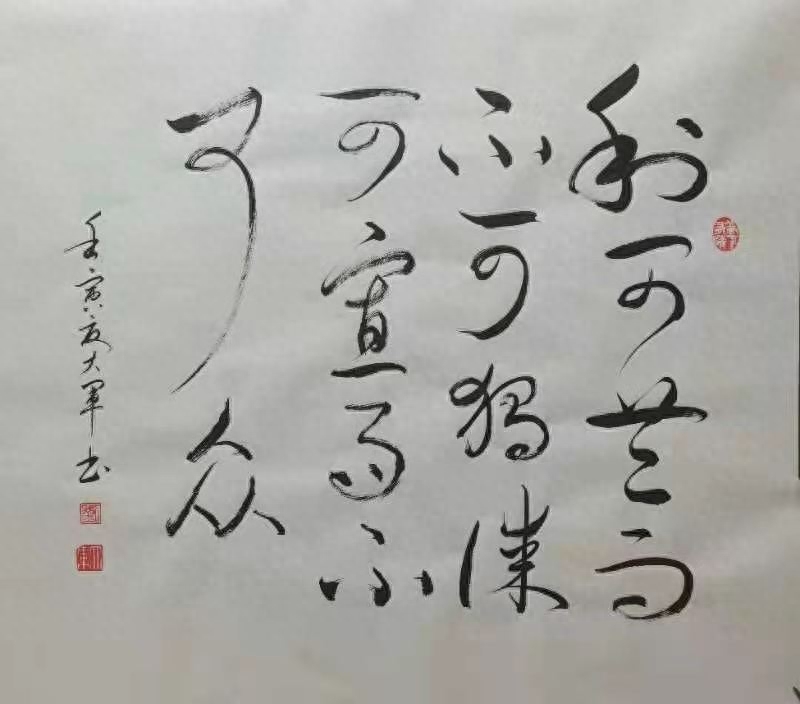 利可共而
不可獨谋
可寡而不
可众
壬寅夏大軍书